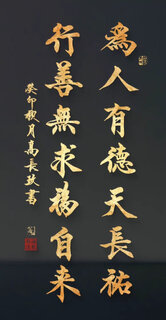 為人有德天長祐
行善無求福自来
癸卯秋月高長鼓書